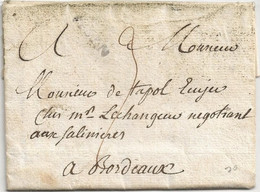 A Monsieur
Monsieur de st pol Ecuyer
chés mr Lechangeur negotiant
aux salinieres
a Bordeaux